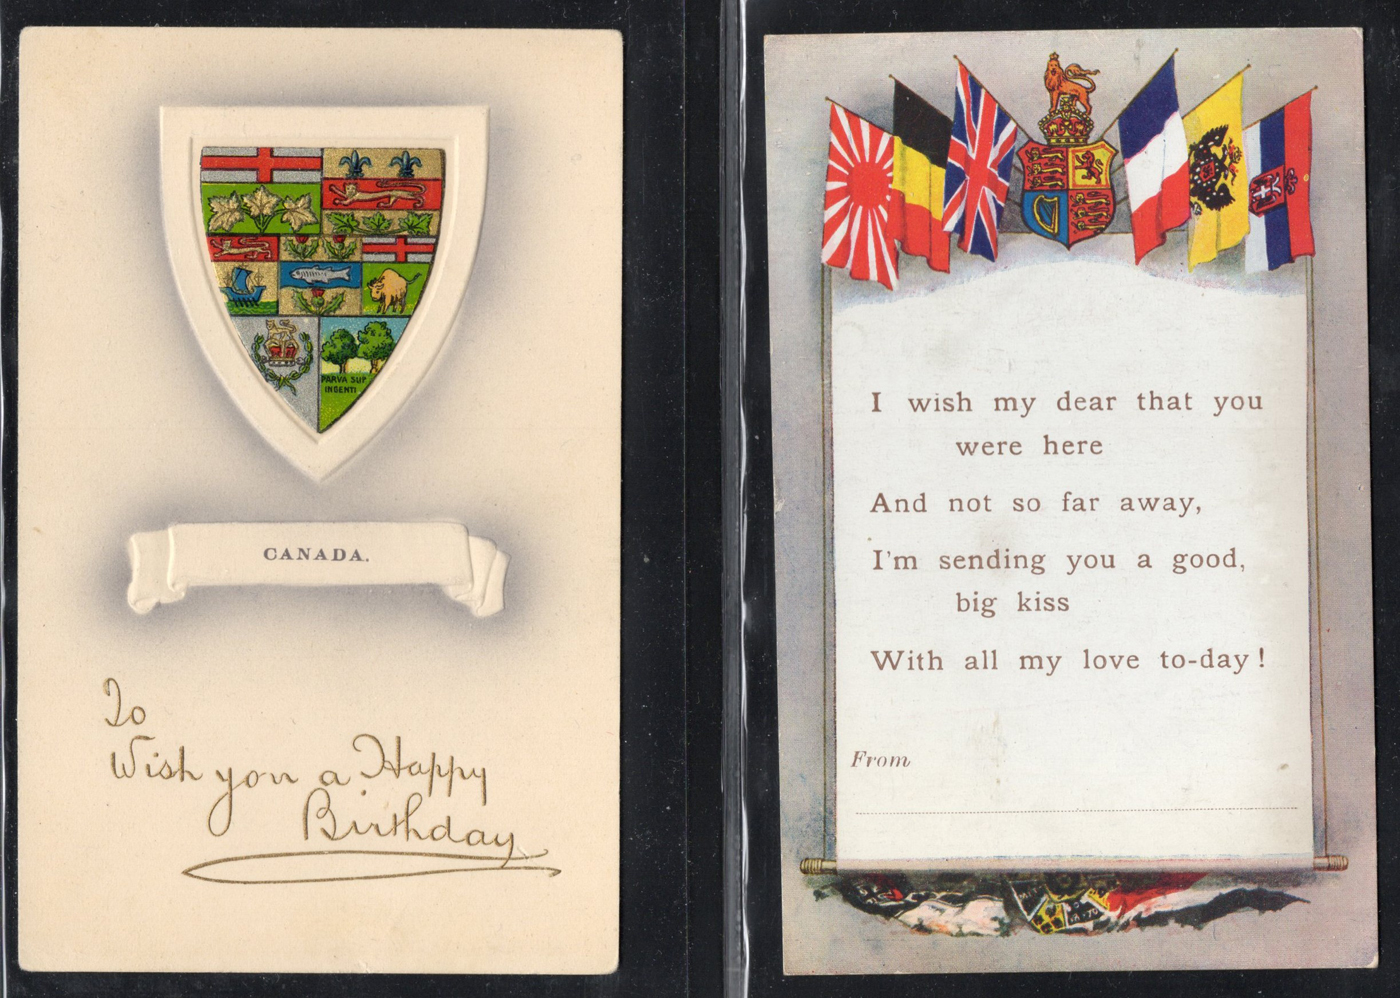 PARVA SUP
INGENTI
CANADA.
To
Wish you a Happy
Birthday
I wish my dear that you
were here
And not so far away,
I'm sending you a good,
big kiss
With all my love to-day!
From